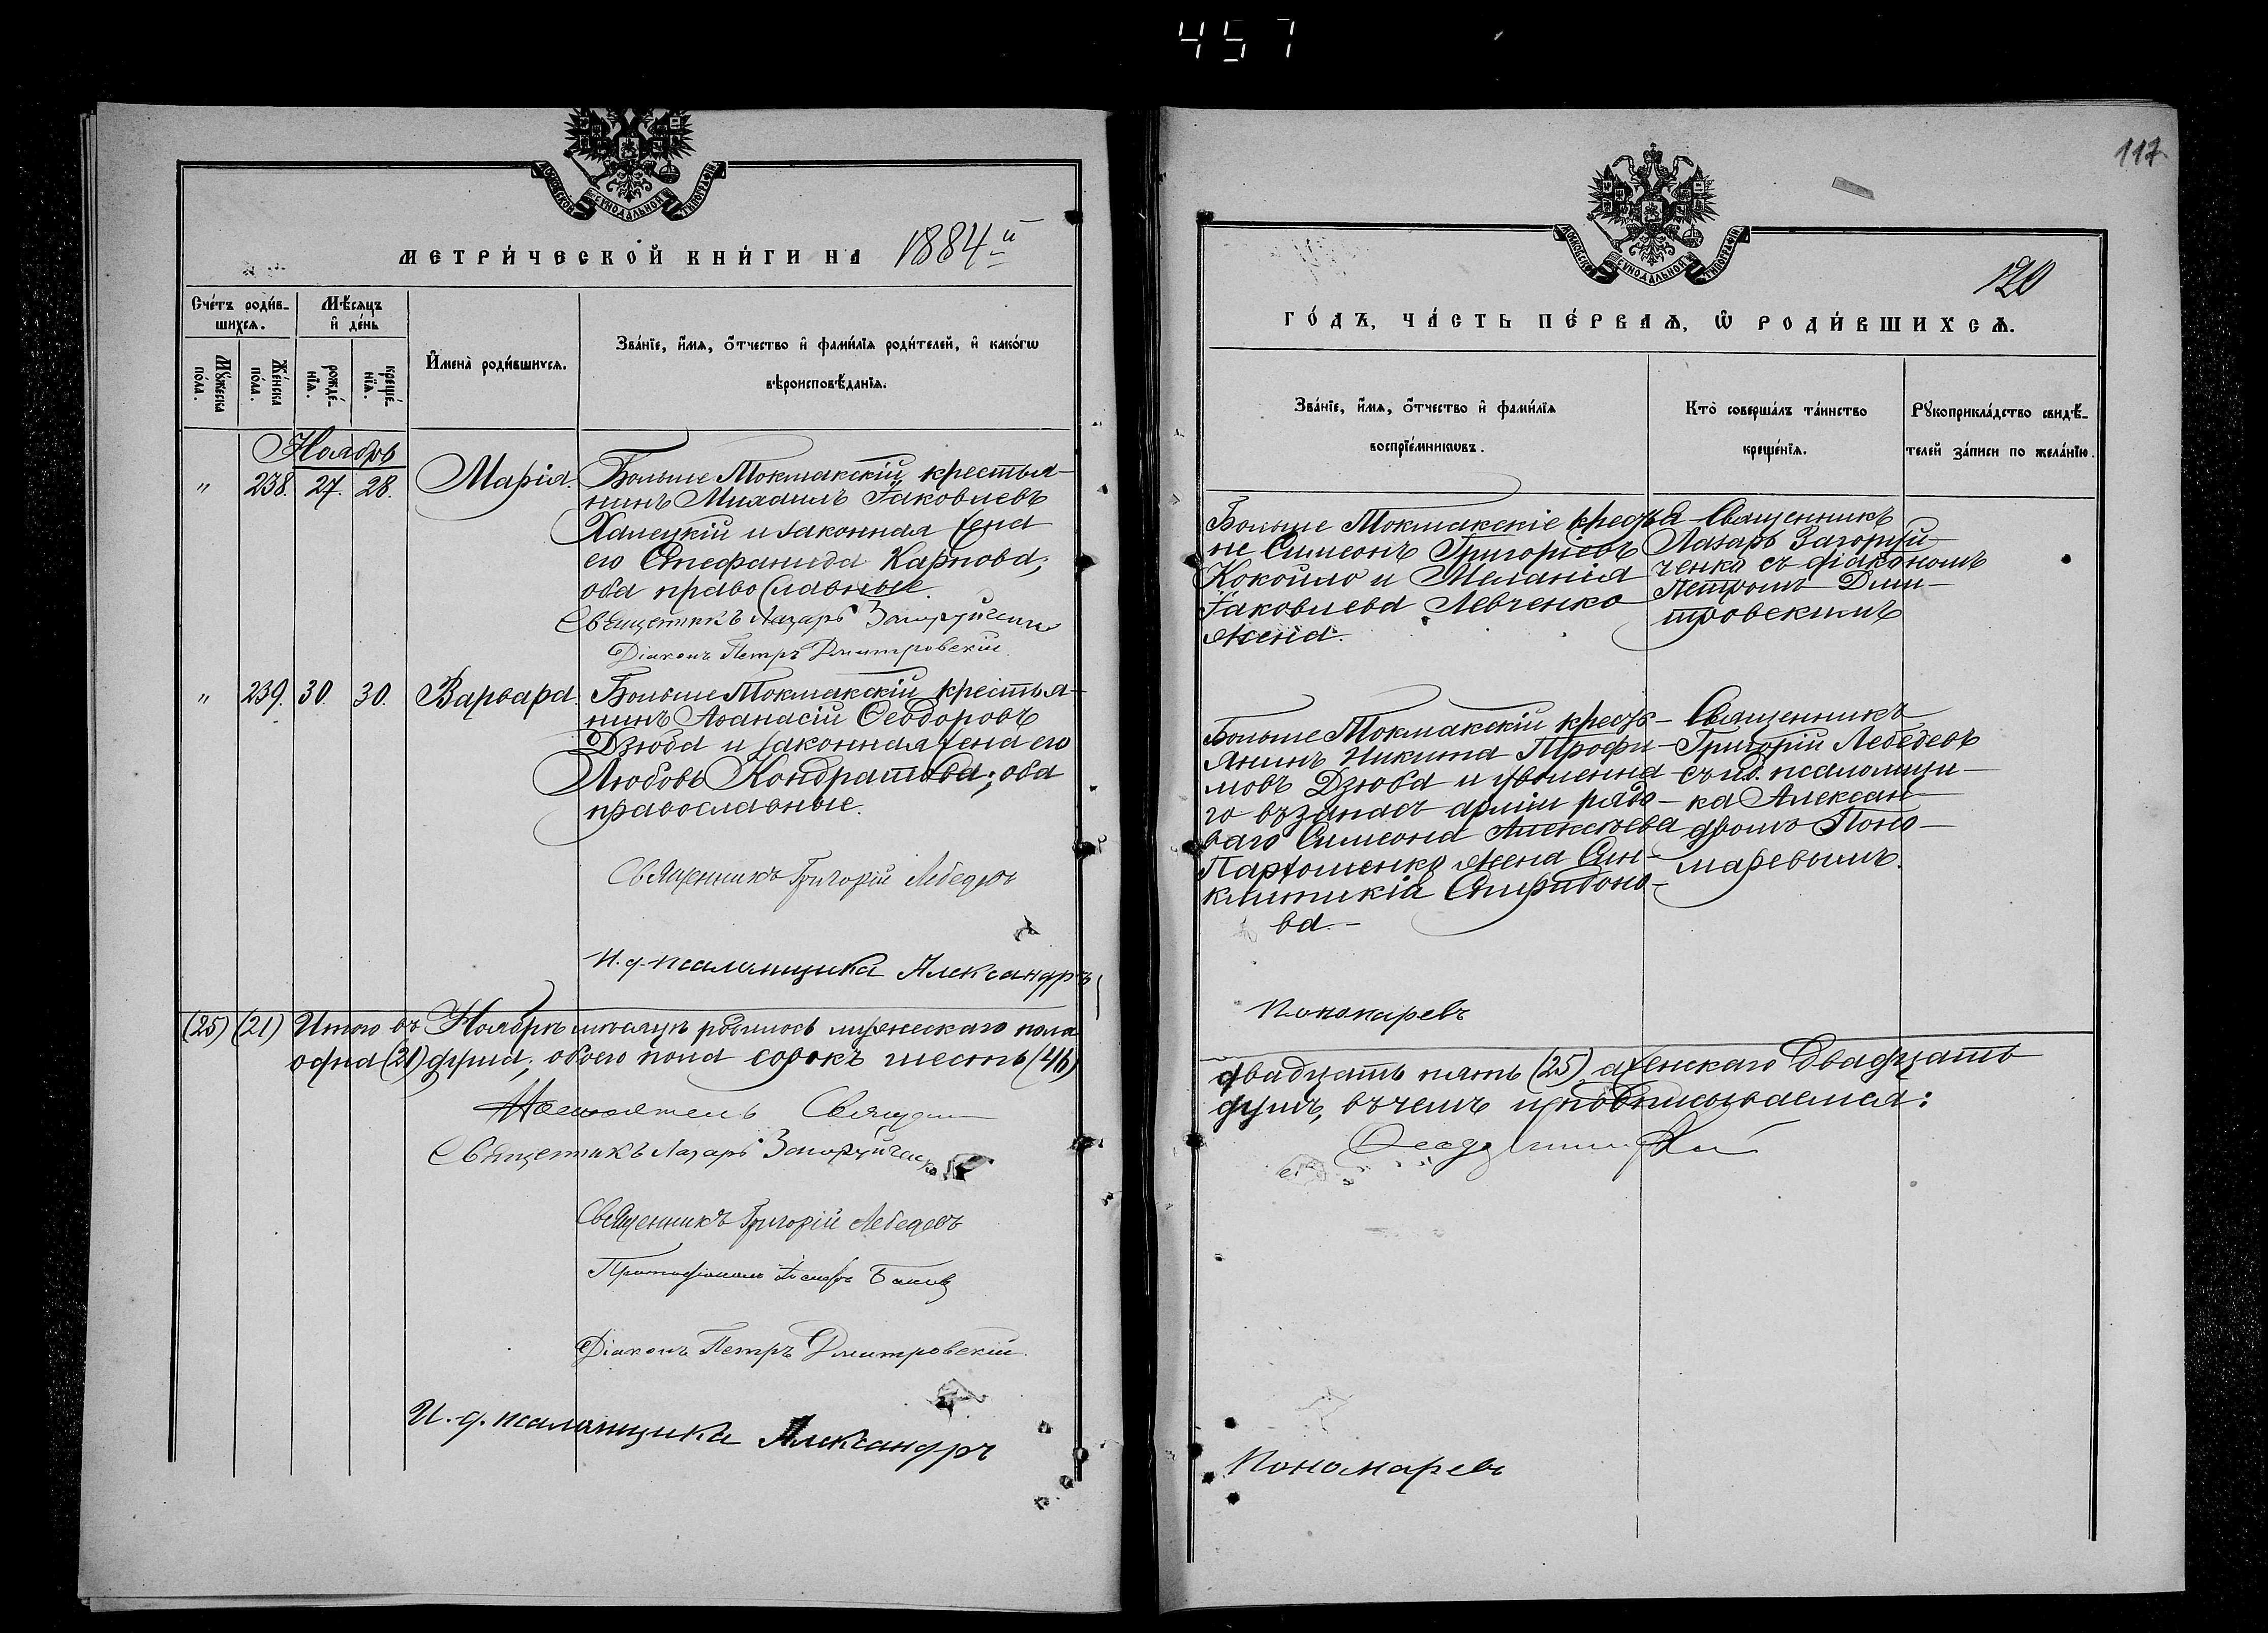 457
117
МОСКОВСКОЙ СѴНОДАЛЬНОЙ ТИПОГРАФІИ
МЕТРИ́ЧЕСКОЙ КНИ́ГИ НА 1884й
Сче́тъ роди́в-
шихсѧ.
Мѣ́сѧцъ
и҆ де́нь
Мꙋ́жеска
по́ла.
Же́нска
по́ла.
рожде́-
нїѧ.
креще́-
нїѧ.
И҆мена̀ роди́вшихсѧ.
Зва́нїе, и҆́мѧ, ѻ҆́тчество и҆ фами́лїѧ роди́телей, и҆ како́гѡ
вѣроисповѣ́данїѧ.
Ноябрь
" 238. 27. 28. Марія.
Больше Токмакскій крестья-
нинъ Михаилъ Іаковлевъ
Халецкій и законная жена
его Стефанида Карпова;
оба православные.
Священникъ Лазарь Загоруйченко
Діаконъ Петръ Дмитровскій
" 239. 30. 30. Варвара.
Больше Токмакскій крестья-
нинъ Аѳанасій Ѳеодоровъ
Дзюба и законная жена его
Любовь Кондратова; оба
православные.
Священникъ Григорій Лебедевъ
И. д. псаломщика Александръ
(25) (21) Итого въ Ноябрѣ мѣсяцѣ родилось мужескаго пола
одна (21) душа, обоего пола сорокъ шесть (46)
Настоятель Священ
Священникъ Лазарь Загоруйченко
Священникъ Григорій Лебедевъ
Протодіаконъ
Діаконъ Петръ Дмитровскій
И. д. псаломщика Александръ
МОСКОВСКОЙ СѴНОДАЛЬНОЙ ТИПОГРАФІИ
120
ГО́ДЪ, ЧА́СТЬ ПЕ́РВАѦ, Ѡ҆ РОДИ́ВШИХСѦ.
Зва́нїе, и҆́мѧ, ѻ҆́тчество и҆ фами́лїѧ
воспрїе́мникѡвъ.
Кто̀ соверша́лъ та́инство
креще́нїѧ.
Рꙋкоприкла́дство свидѣ́-
телей за́писи по жела́нїю.
Больше Токмакскіе крестья-
не Симеонъ Григоріевъ
Кокойло и Меланія
Іаковлева Левченко
жена.
Священникъ
Лазарь Загоруй-
ченко съ діакономъ
Петромъ Дми-
тровскимъ
Больше Токмакскій кресть-
янинъ Никита Трофи-
мовъ Дзюба и уволенна-
го въ запасъ арміи рядо-
ваго Симеона Алексѣева
Пархоменко жена Син-
клитикія Спиридоно-
ва.-
Священникъ
Григорій Лебедевъ
съ и.д. псаломщи-
ка Алексан-
дромъ Поно-
маревымъ.
Пономаревъ
двадцать пять (25), а женскаго двадцать
душъ, въ чемъ и подписываемся:
Пономаревъ